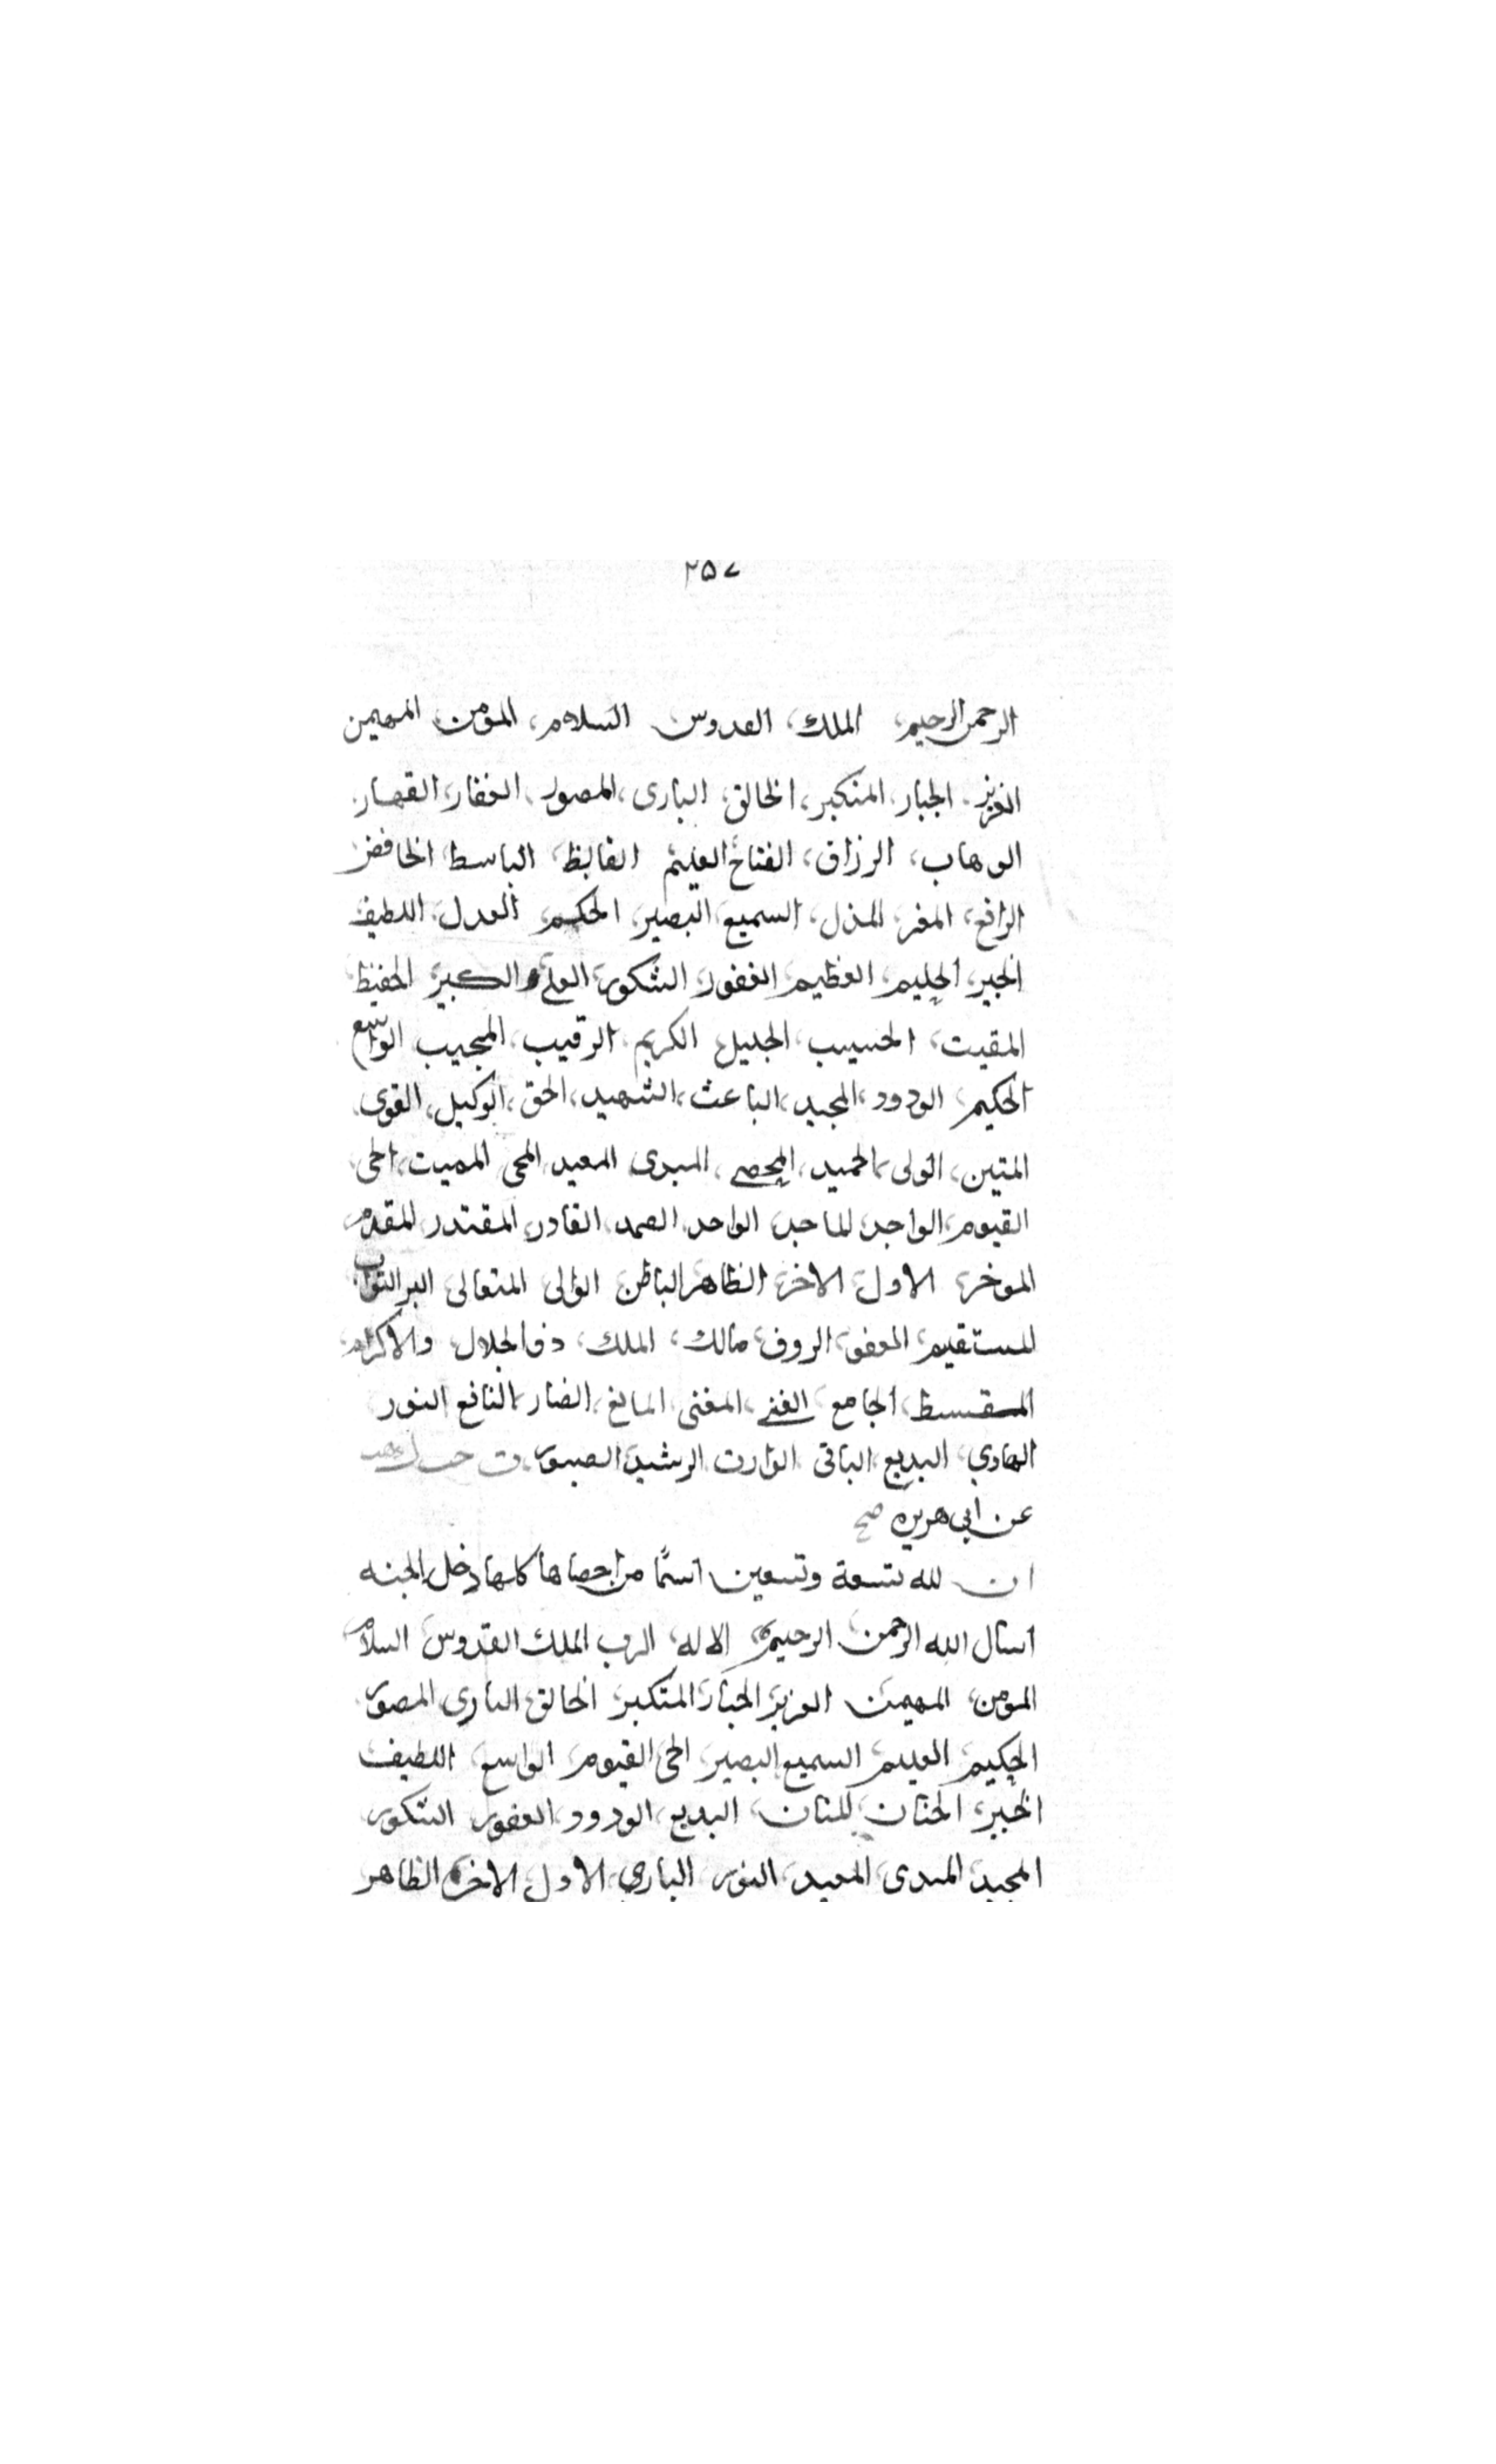 ٢٥٧
الرحمن الرحيم، الملك، القدوس السلام، المؤمن، المهيمن
العزيز، الجبار، المتكبر، الخالق، البارى، المصور، الغفار، القهار
الوهاب، الرزاق، الفتاح العليم القابظ، الباسط، الخافض
الرافع، المعز، المذل، السميع، البصير، الحكم، العدل، اللطيف
الخبير، الحليم، العظيم، الغفور، الشكور، العلى، الكبير، الحفيظ
المقيت، الحسيب، الجليل، الكريم، الرقيب، المجيب، الواسع
الحكيم، الودود، المجيد، الباعث، الشهيد، الحق، الوكيل، القوى
المتين، الولى، الحميد، المحصى، المبدى المعيد، المحى المميت، الحى
القيوم، الواجد، الماجد، الواحد، الصمد، القادر، المقتدر، المقدم
الموخر، الاول، الاخر، الظاهر، الباطن، الوالى المتعالى البر التواب
المستقيم، العفو، الروف، مالك، الملك، ذو الجلال، والاكرام
المقسط، الجامع، الغنى، المغنى، المانع، الضار، النافع النور
الهادي، البديع، الباقى، الوارث، الرشيد، الصبور، ت حب ك هب
عن ابى هريره صح
ان لله تسعة وتسعين اسمًا من احصاها كلها دخل الجنه
اسال الله الرحمن الرحيم، الاله، الرب الملك القدوس السلام
المومن، المهيمن العزيز، الجبار، المتكبر، الخالق، البارى، المصور
الحكيم العليم السميع البصير، الحى القيوم، الواسع، اللطيف
الخبير، الحنان، المنان، البديع، الودود، الغفور، الشكور
المجيد، المبدى، المعيد، النور، البارى، الاول، الاخر، الظاهر